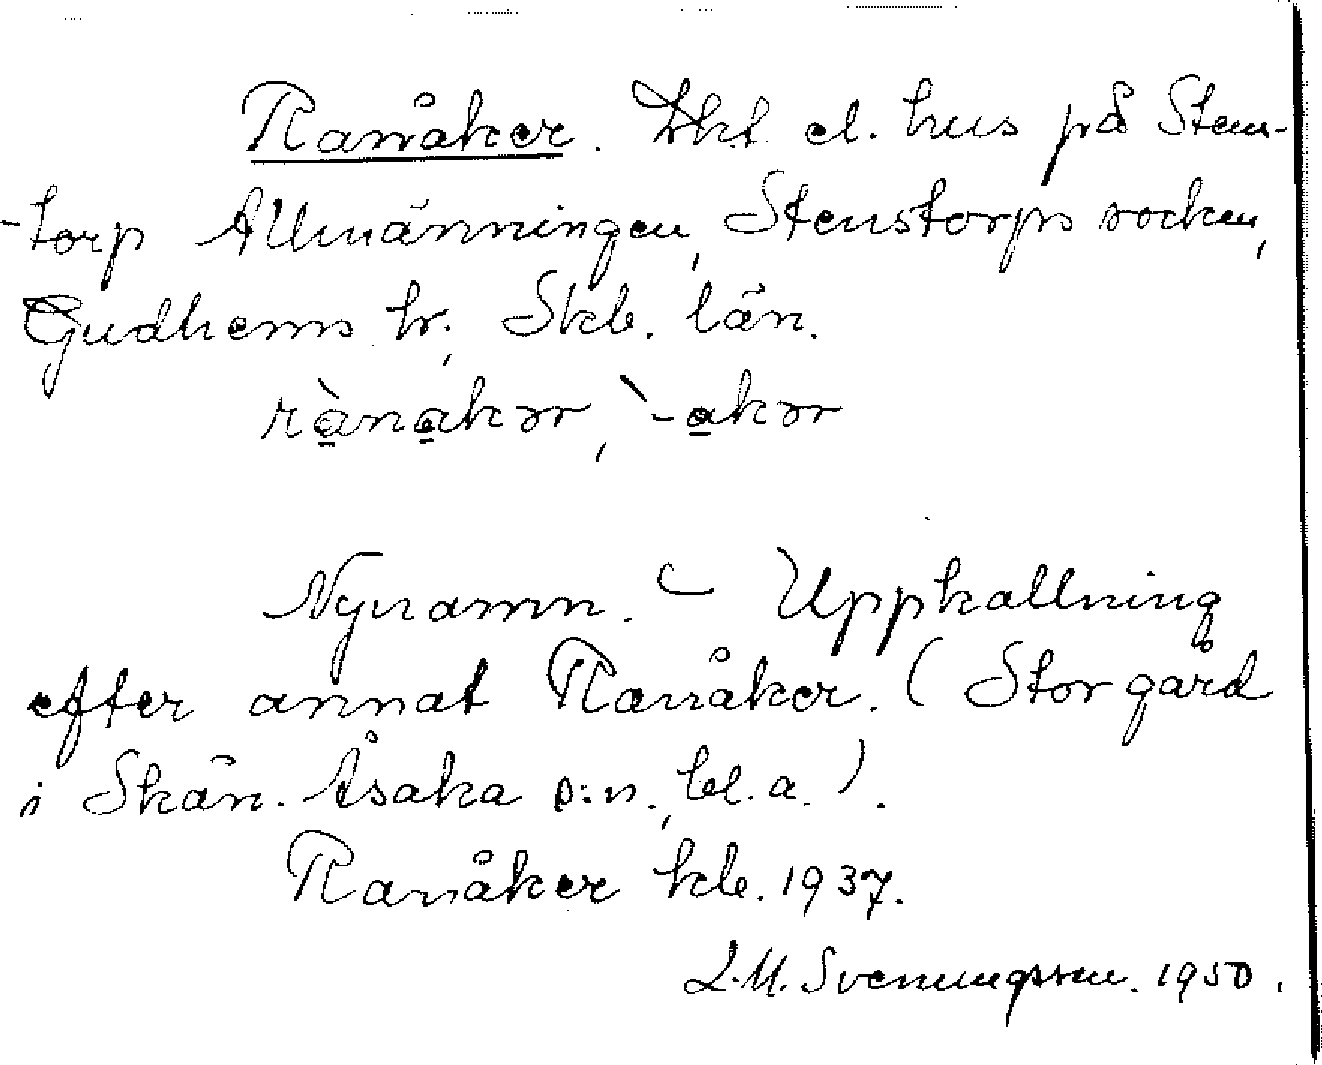 Ranåker. Lht el. hus på Sten-
-torp Allmänningen, Stenstorps socken,
Gudhems hr, Skb. län.
rànakər, `-akər
Nynamn. – Uppkallning
efter annat Ranåker. (Stor gård
i Skån. Åsaka s:n, bl. a.).
Ranåker kb. 1937.
L.M. Svenungsson. 1950.